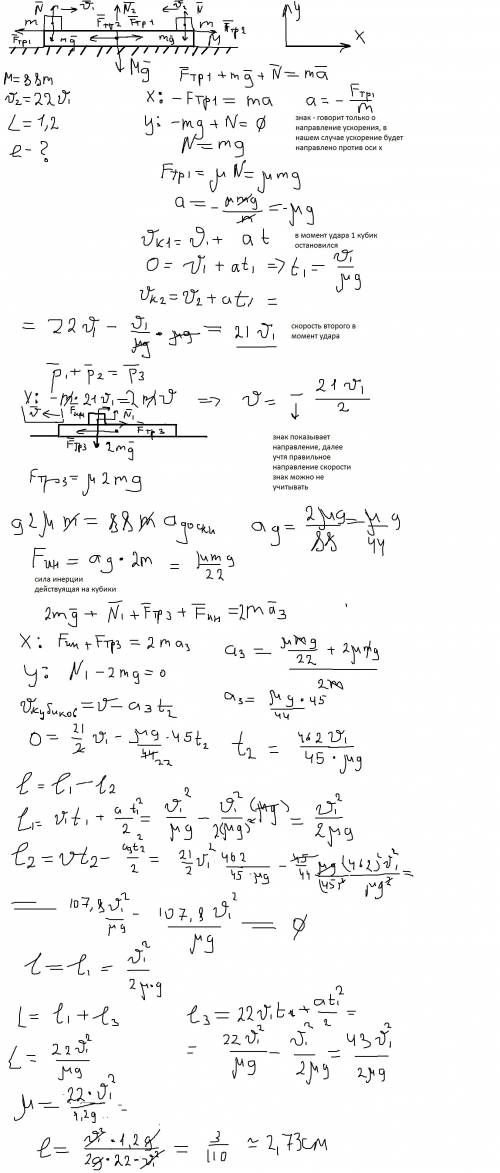 N̄ v̄₁ N̄₂ F̄тр2 F̄тр1 v̄ N̄
m m̄g mḡ m μ F̄тр2
F̄тр1
Mḡ
y
x
M=88m
v₂=22v₁
L=1,2
l-?
F̄тр1+mḡ+N̄=mā
x: -Fтр1=ma a=-Fтр1/m
y: -mg+N=0
N=mg
знак - говорит только о
направление ускорения, в
нашем случае ускорение будет
направлено против оси x
Fтр1=μN=μmg
a=-μmg/m=-μg
vк1=v₁+at
в момент удара 1 кубик
остановился
0=v₁+at₁ => t₁=v₁/μg
vк2=v₂+at₁=
=22v₁-v₁/μg·μg=21v₁
скорость второго в
момент удара
p̄₁+p̄₂=p̄₃
x: -m·21v₁=2mv => v=-21v₁/2
v̄ F̄ин N̄₁ F̄тр3
F̄тр3 2mḡ
знак показывает
направление, далее
учтя правильное
направление скорости
знак можно не
учитывать
Fтр3=μ2mg
g2μm=88m aдоски aд=2μg/88=μg/44
Fин=aд·2m=μmg/22
сила инерции
действующая на кубики
2mḡ+N̄₁+F̄тр3+F̄ин=2mā₃
x: Fин+Fтр3=2ma₃ a₃=(μmg/22+2μmg)/2m
y: N₁-2mg=0
vкубиков=v-a₃t₂ a₃=μg/44·45
0=21/2v₁-μg/44·45t₂ 22 t₂=462v₁/45·μg
l=l₁-l₂
l₁=v₁t₁+at₁²/2=v₁²/μg-v₁²(μg)/2(μg)²=v₁²/2μg
l₂=vt₂-a₃t₂²/2=21/2v₁²462/45·μg-45/44 μg(462)²v₁²/(45)²μg²=
=107,8v₁²/μg-107,8v₁²/μg=0
l=l₁=v₁²/2μ·g
L=l₁+l₃ l₃=22v₁t₁+at₁²/2=
L=22v₁²/μg =22v₁²/μg-v₁²/2μg=43v₁²/2μg
μ=22·v₁²/1,2g
l=v₁²·1,2g/2g·22·v₁²=3/110≈2,73см